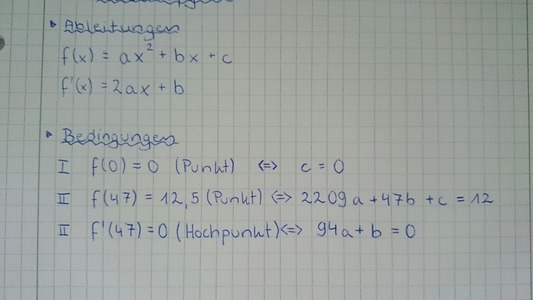 Ableitungen
f(x) = ax² + bx + c
f'(x) = 2ax + b
Bedingungen
I f(0) = 0 (Punkt) <=> c = 0
II f(47) = 12,5 (Punkt) <=> 2209a + 47b + c = 12
II f'(47) = 0 (Hochpunkt) <=> 94a + b = 0